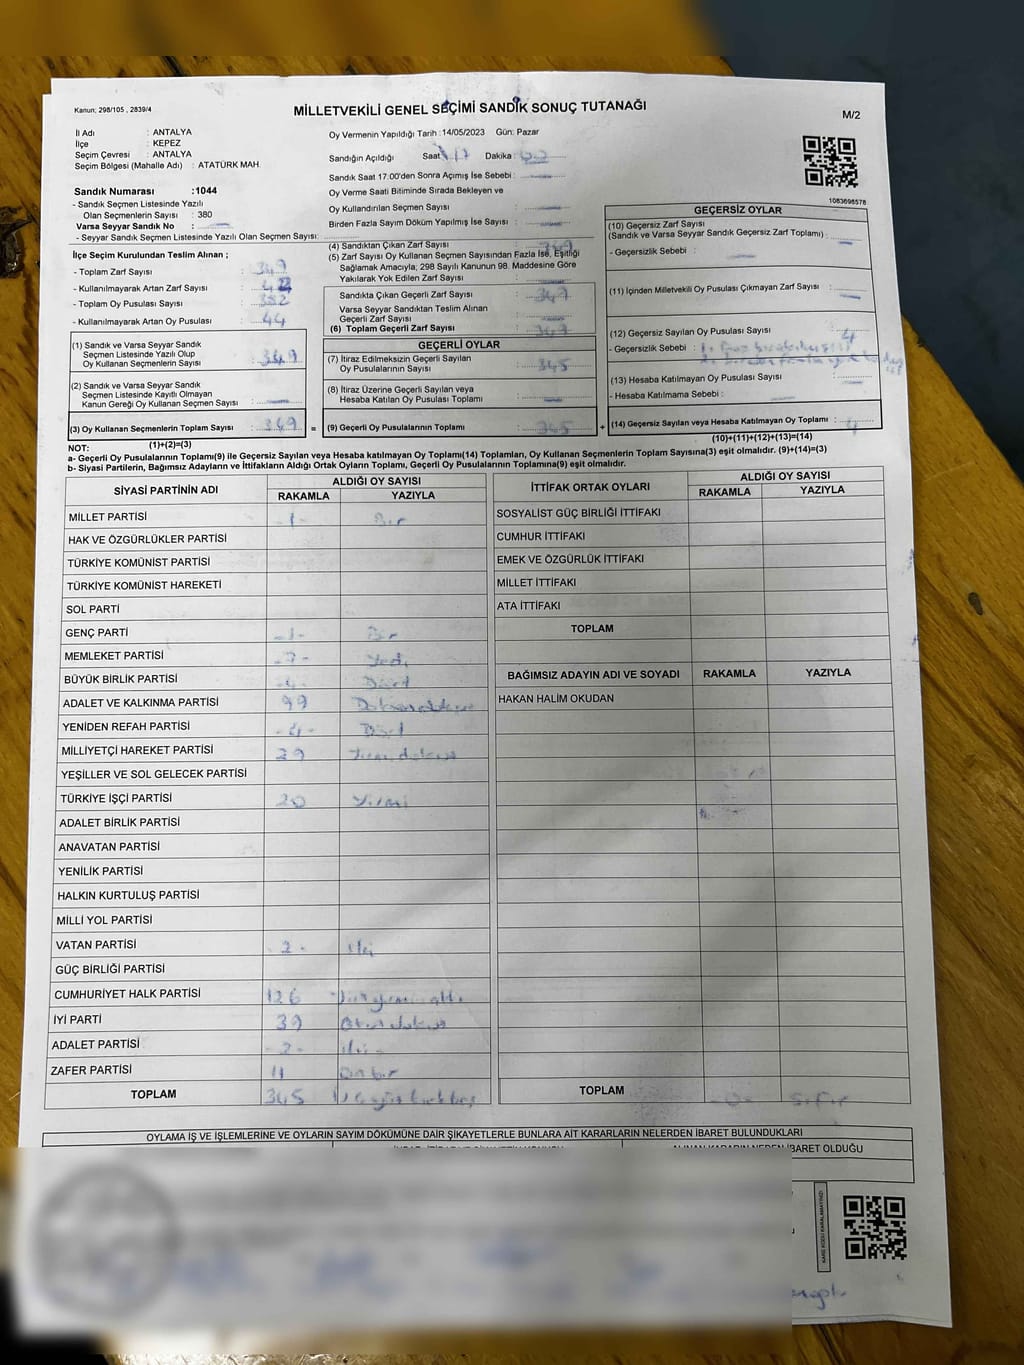 Kanun; 298/105 , 2839/4
MİLLETVEKİLİ GENEL SEÇİMİ SANDIK SONUÇ TUTANAĞI
M/2
İl Adı : ANTALYA
İlçe : KEPEZ
Seçim Çevresi : ANTALYA
Seçim Bölgesi (Mahalle Adı) : ATATÜRK MAH.
Sandık Numarası :1044
- Sandık Seçmen Listesinde Yazılı
Olan Seçmenlerin Sayısı : 380
Varsa Seyyar Sandık No :
- Seyyar Sandık Seçmen Listesinde Yazılı Olan Seçmen Sayısı:
Oy Vermenin Yapıldığı Tarih :14/05/2023 Gün: Pazar
Sandığın Açıldığı Saat 17 Dakika :
Sandık Saat 17:00'den Sonra Açımış İse Sebebi :
Oy Verme Saati Bitiminde Sırada Bekleyen ve
Oy Kullandırılan Seçmen Sayısı :
Birden Fazla Sayım Döküm Yapılmış İse Sayısı :
1083698578
İlçe Seçim Kurulundan Teslim Alınan ;
- Toplam Zarf Sayısı :
- Kullanılmayarak Artan Zarf Sayısı :
- Toplam Oy Pusulası Sayısı :
- Kullanılmayarak Artan Oy Pusulası : 44
(1) Sandık ve Varsa Seyyar Sandık
Seçmen Listesinde Yazılı Olup
Oy Kullanan Seçmenlerin Sayısı : 349
(2) Sandık ve Varsa Seyyar Sandık
Seçmen Listesinde Kayıtlı Olmayan
Kanun Gereği Oy Kullanan Seçmen Sayısı :
(3) Oy Kullanan Seçmenlerin Toplam Sayısı : 349
(1)+(2)=(3)
(4) Sandıktan Çıkan Zarf Sayısı : 349
(5) Zarf Sayısı Oy Kullanan Seçmen Sayısından Fazla İse, Eşitliği
Sağlamak Amacıyla; 298 Sayılı Kanunun 98. Maddesine Göre
Yakılarak Yok Edilen Zarf Sayısı :
Sandıkta Çıkan Geçerli Zarf Sayısı : 349
Varsa Seyyar Sandıktan Teslim Alınan
Geçerli Zarf Sayısı :
(6) Toplam Geçerli Zarf Sayısı : 349
GEÇERLİ OYLAR
(7) İtiraz Edilmeksizin Geçerli Sayılan
Oy Pusulalarının Sayısı : 345
(8) İtiraz Üzerine Geçerli Sayılan veya
Hesaba Katılan Oy Pusulası Toplamı :
= (9) Geçerli Oy Pusulalarının Toplamı : 345 +
GEÇERSİZ OYLAR
(10) Geçersiz Zarf Sayısı
(Sandık ve Varsa Seyyar Sandık Geçersiz Zarf Toplamı) :
- Geçersizlik Sebebi :
(11) İçinden Milletvekili Oy Pusulası Çıkmayan Zarf Sayısı :
(12) Geçersiz Sayılan Oy Pusulası Sayısı : 4
- Geçersizlik Sebebi :
(13) Hesaba Katılmayan Oy Pusulası Sayısı :
- Hesaba Katılmama Sebebi :
(14) Geçersiz Sayılan veya Hesaba Katılmayan Oy Toplamı : 4
(10)+(11)+(12)+(13)=(14)
NOT:
a- Geçerli Oy Pusulalarının Toplamı(9) ile Geçersiz Sayılan veya Hesaba Katılmayan Oy Toplamı(14) Toplamları, Oy Kullanan Seçmenlerin Toplam Sayısına(3) eşit olmalıdır. (9)+(14)=(3)
b- Siyasi Partilerin, Bağımsız Adayların ve İttifakların Aldığı Ortak Oyların Toplamı, Geçerli Oy Pusulalarının Toplamına(9) eşit olmalıdır.
SİYASİ PARTİNİN ADI ALDIĞI OY SAYISI
RAKAMLA YAZIYLA
MİLLET PARTİSİ -1- Bir
HAK VE ÖZGÜRLÜKLER PARTİSİ
TÜRKİYE KOMÜNİST PARTİSİ
TÜRKİYE KOMÜNİST HAREKETİ
SOL PARTİ
GENÇ PARTİ -1- Bir
MEMLEKET PARTİSİ -7- Yedi
BÜYÜK BİRLİK PARTİSİ -4- Dört
ADALET VE KALKINMA PARTİSİ 99 Doksandokuz
YENİDEN REFAH PARTİSİ -4- Dört
MİLLİYETÇİ HAREKET PARTİSİ 29 Yirmidokuz
YEŞİLLER VE SOL GELECEK PARTİSİ
TÜRKİYE İŞÇİ PARTİSİ 20 Yirmi
ADALET BİRLİK PARTİSİ
ANAVATAN PARTİSİ
YENİLİK PARTİSİ
HALKIN KURTULUŞ PARTİSİ
MİLLİ YOL PARTİSİ
VATAN PARTİSİ -2- iki
GÜÇ BİRLİĞİ PARTİSİ
CUMHURİYET HALK PARTİSİ 126 Yüzyirmi altı
İYİ PARTİ 39 Otuzdokuz
ADALET PARTİSİ -2- iki
ZAFER PARTİSİ 11 Onbir
TOPLAM 345 Üçyüzkırkbeş
İTTİFAK ORTAK OYLARI ALDIĞI OY SAYISI
RAKAMLA YAZIYLA
SOSYALİST GÜÇ BİRLİĞİ İTTİFAKI
CUMHUR İTTİFAKI
EMEK VE ÖZGÜRLÜK İTTİFAKI
MİLLET İTTİFAKI
ATA İTTİFAKI
TOPLAM
BAĞIMSIZ ADAYIN ADI VE SOYADI RAKAMLA YAZIYLA
HAKAN HALİM OKUDAN
TOPLAM -0- Sıfır
OYLAMA İŞ VE İŞLEMLERİNE VE OYLARIN SAYIM DÖKÜMÜNE DAİR ŞİKAYETLERLE BUNLARA AİT KARARLARIN NELERDEN İBARET BULUNDUKLARI
ALINAN KARARIN NEDEN İBARET OLDUĞU
KARE KODU KARALAMAYINIZ!